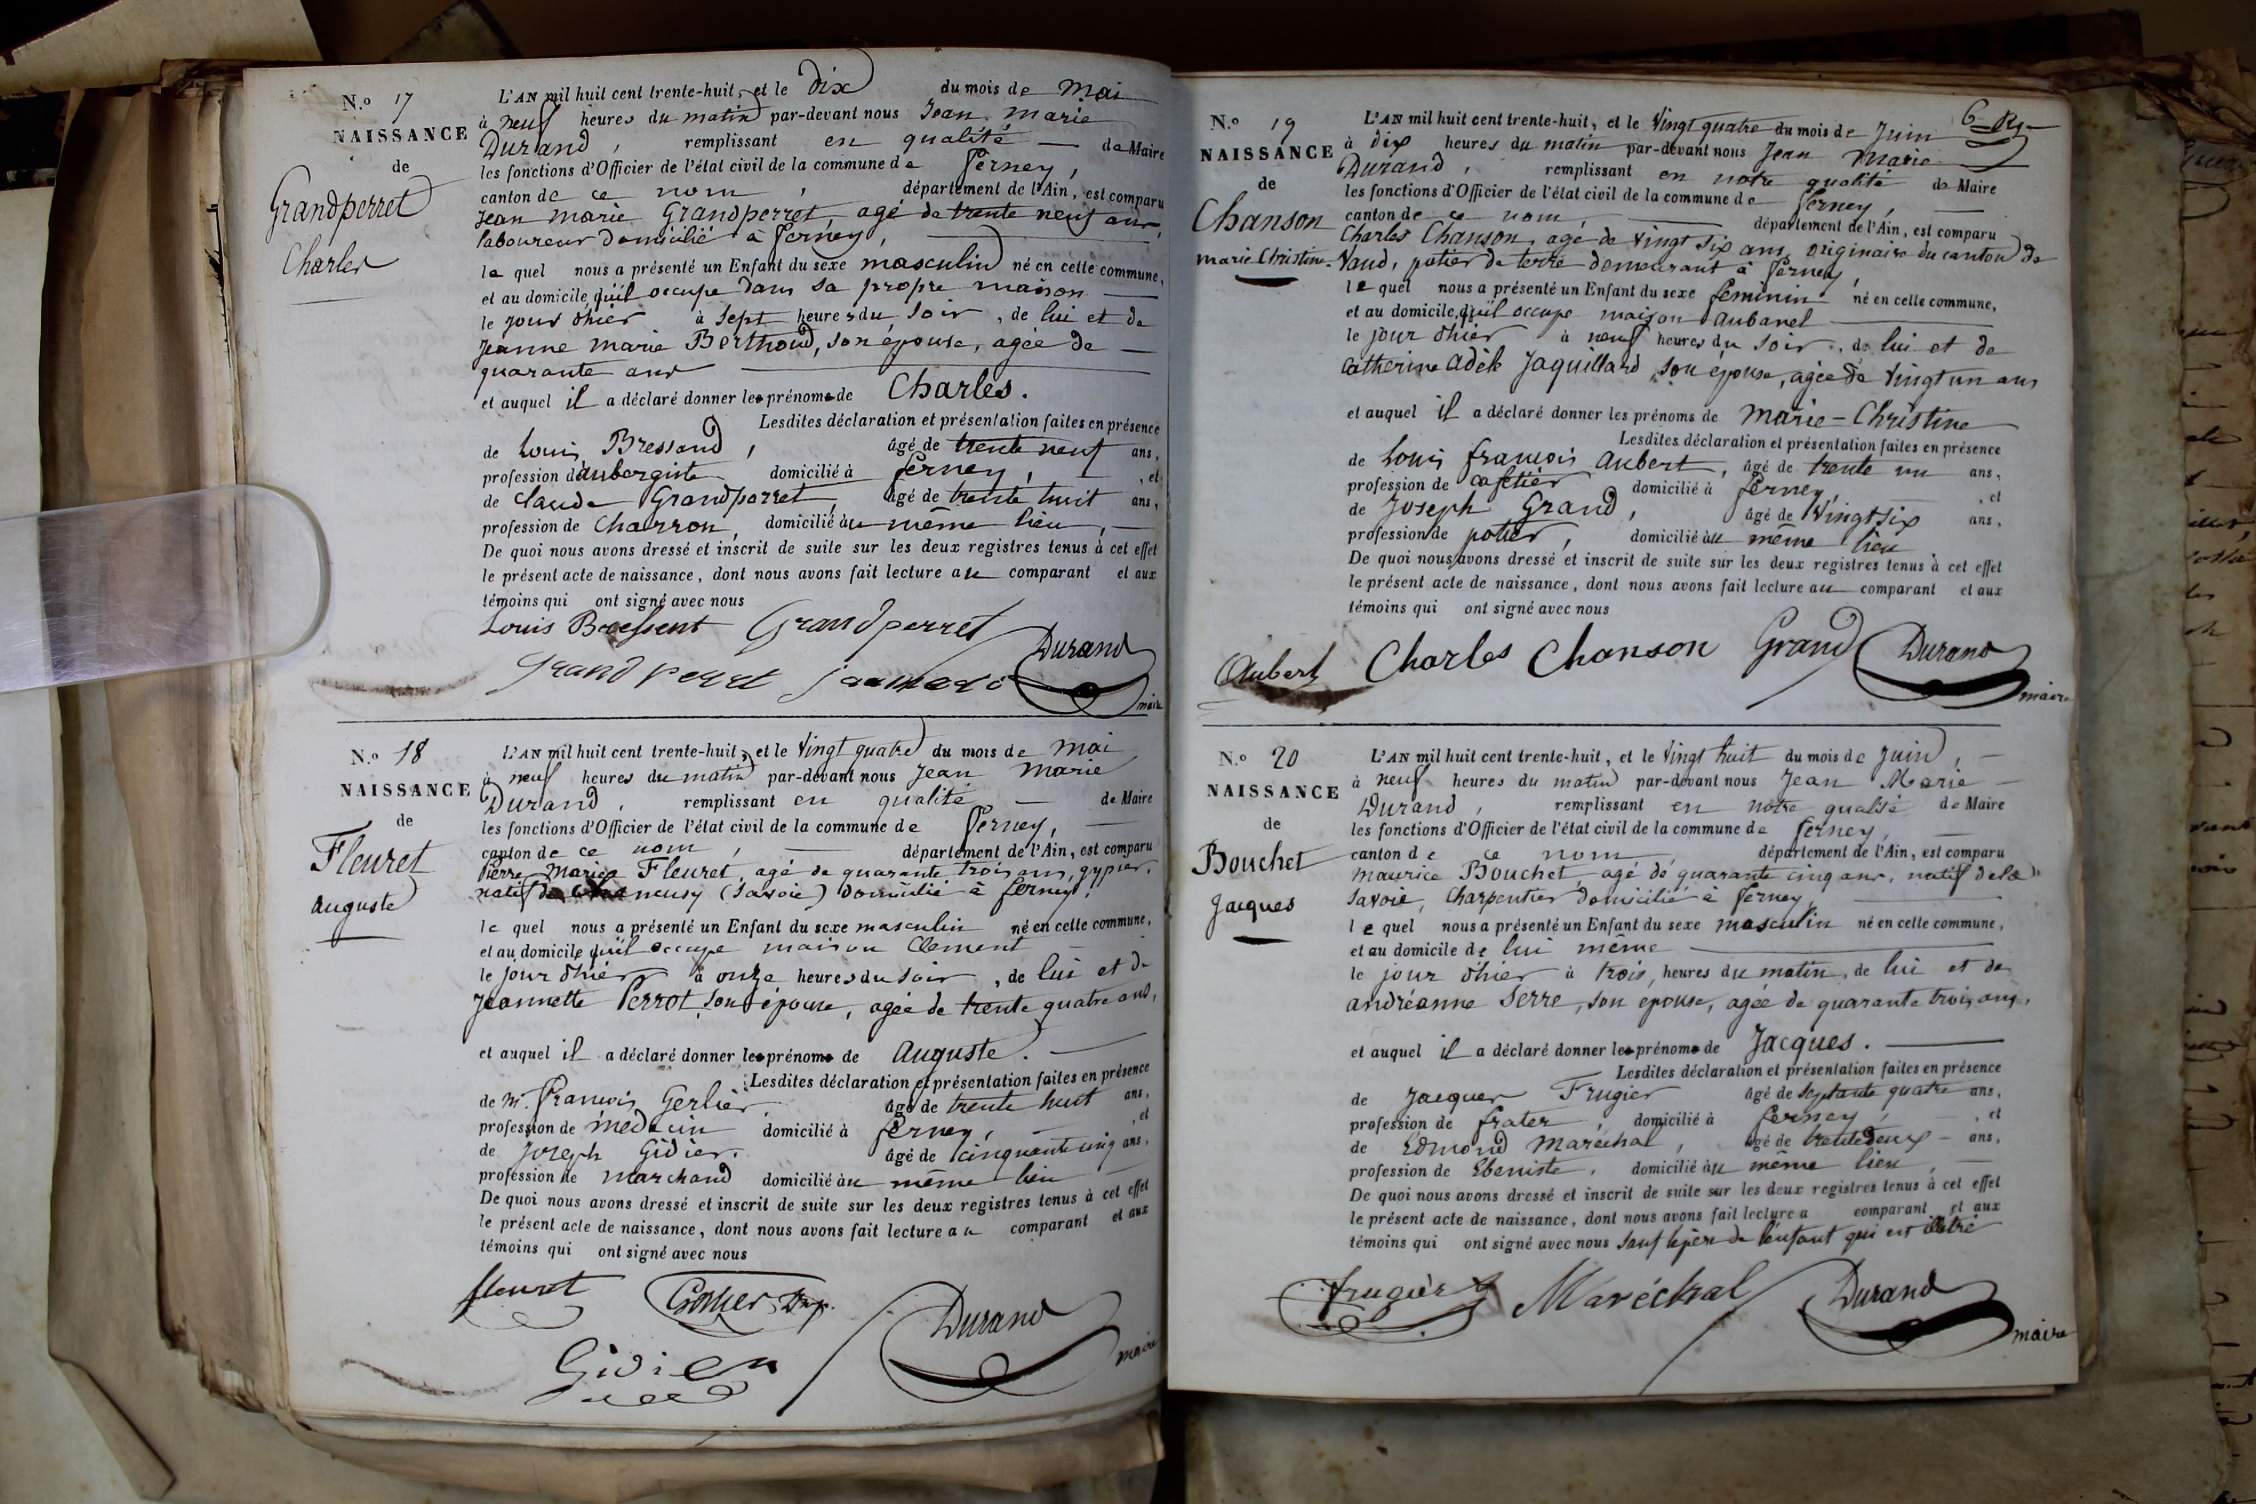 N.o 17
NAISSANCE
de
Grandperret
Charles
L'AN mil huit cent trente-huit, et le Dix du mois de Mai
à neuf heures du matin par-devant nous Jean marie
Durand, remplissant en qualité de Maire
les fonctions d'Officier de l'état civil de la commune de ferney,
canton de ce nom, département de l'Ain, est comparu
Jean marie Grandperret, agé de trente neuf ans,
laboureur domicilié à ferney,
le quel nous a présenté un Enfant du sexe masculin né en cette commune,
et au domicile qu'il occupe dans sa propre maison
le jour d'hier à sept heures du soir, de lui et de
Jeanne marie Berthoud, son épouse, agée de
quarante ans
et auquel il a déclaré donner les prénoms de Charles.
Lesdites déclaration et présentation faites en présence
de Louis Bressand, âgé de trente neuf ans,
profession d'aubergiste domicilié à ferney, et
de Claude Grandperret, âgé de trente huit ans,
profession de Charron, domicilié au même lieu,
De quoi nous avons dressé et inscrit de suite sur les deux registres tenus à cet effet
le présent acte de naissance, dont nous avons fait lecture au comparant et aux
témoins qui ont signé avec nous
Louis Bressent Grandperret
Grandperret Durand
maire
N.o 18
NAISSANCE
de
Fleuret
auguste
L'AN mil huit cent trente-huit, et le Vingt quatre du mois de mai
à neuf heures du matin par-devant nous Jean Marie
Durand, remplissant en qualité de Maire
les fonctions d'Officier de l'état civil de la commune de ferney,
canton de ce nom, département de l'Ain, est comparu
Pierre Marie Fleuret, agé de quarante trois ans, gypier,
natif de (Savoie) domicilié à ferney,
le quel nous a présenté un Enfant du sexe masculin né en cette commune,
et au domicile qu'il occupe maison Clement
le jour d'hier à onze heures du soir, de lui et de
Jeannette Perrot, son épouse, agée de trente quatre ans,
et auquel il a déclaré donner les prénoms de auguste.
Lesdites déclaration et présentation faites en présence
de Mr. François Gerlier âgé de trente huit ans,
profession de médecin domicilié à ferney, et
de Joseph Gidier. âgé de cinquante cinq ans,
profession de marchand domicilié au même lieu
De quoi nous avons dressé et inscrit de suite sur les deux registres tenus à cet effet
le présent acte de naissance, dont nous avons fait lecture au comparant et aux
témoins qui ont signé avec nous
fleuret
Gidier Durand
maire
N.o 19
NAISSANCE
de
Chanson
marie Christine
L'AN mil huit cent trente-huit, et le Vingt quatre du mois de Juin
à dix heures du matin par-devant nous Jean Marie
Durand, remplissant en notre qualité de Maire
les fonctions d'Officier de l'état civil de la commune de ferney,
canton de ce nom, département de l'Ain, est comparu
Charles Chanson, agé de vingt six ans, originaire du canton de
Vaud, potier de terre demeurant à ferney,
le quel nous a présenté un Enfant du sexe feminin né en cette commune,
et au domicile qu'il occupe maison aubanel
le jour d'hier à neuf heures du soir, de lui et de
Catherine Adèle Jaquillard, son épouse, agée de vingt un ans
et auquel il a déclaré donner les prénoms de Marie-Christine
Lesdites déclaration et présentation faites en présence
de Louis François aubert, âgé de trente un ans,
profession de cafetier domicilié à ferney, et
de Joseph Grand, âgé de Vingt six ans,
profession de potier, domicilié au même lieu
De quoi nous avons dressé et inscrit de suite sur les deux registres tenus à cet effet
le présent acte de naissance, dont nous avons fait lecture au comparant et aux
témoins qui ont signé avec nous
Aubert Charles Chanson Grand Durand
maire
N.o 20
NAISSANCE
de
Bouchet
Jacques
L'AN mil huit cent trente-huit, et le Vingt huit du mois de Juin,
à neuf heures du matin par-devant nous Jean Marie
Durand, remplissant en notre qualité de Maire
les fonctions d'Officier de l'état civil de la commune de ferney,
canton de ce nom département de l'Ain, est comparu
maurice Bouchet, agé de quarante cinq ans, natif de la
Savoie, charpentier domicilié à ferney,
le quel nous a présenté un Enfant du sexe masculin né en cette commune,
et au domicile de lui même
le jour d'hier à trois heures du matin, de lui et de
andréanne Serre, son épouse, agée de quarante trois ans,
et auquel il a déclaré donner les prénoms de Jacques.
Lesdites déclaration et présentation faites en présence
de Jacques Frugier âgé de septante quatre ans,
profession de frater, domicilié à ferney, et
de Edmond Maréchal, âgé de trente deux ans,
profession de Ebeniste, domicilié au même lieu,
De quoi nous avons dressé et inscrit de suite sur les deux registres tenus à cet effet
le présent acte de naissance, dont nous avons fait lecture a comparant et aux
témoins qui ont signé avec nous sauf le père de l'enfant qui est illetré
frugier Maréchal Durand
maire